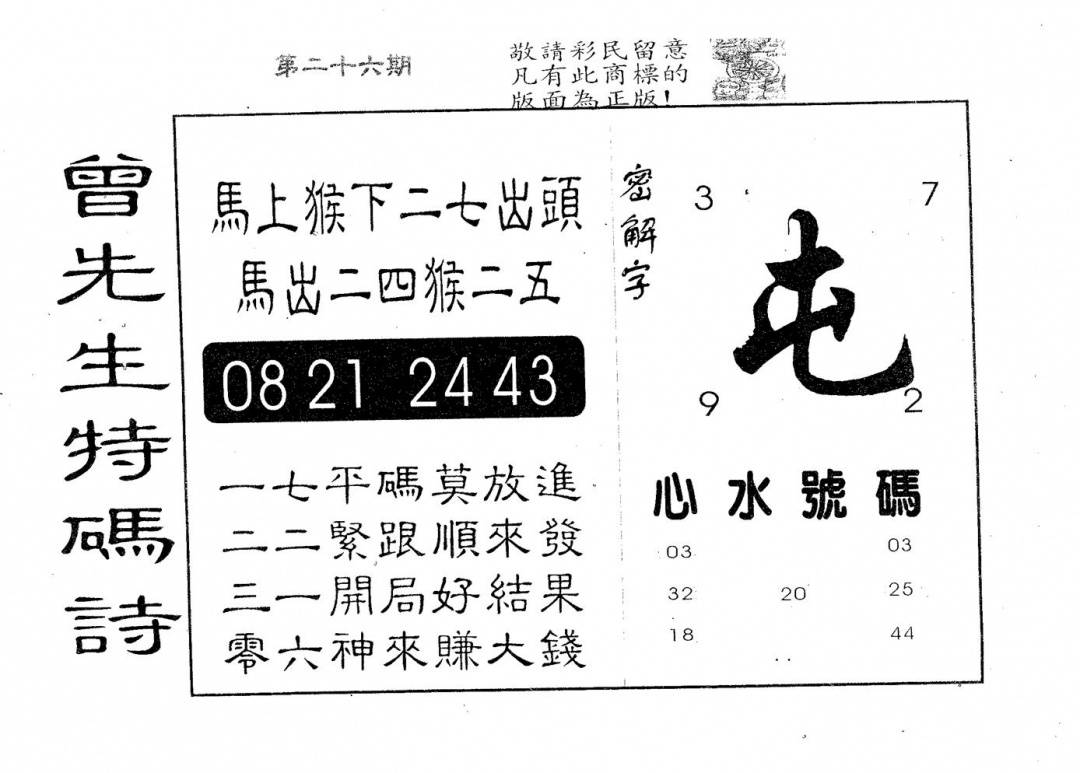 第二十六期
敬請彩民留意
凡有此商標的
版面為正版!
曾先生特碼詩
馬上猴下二七出頭
馬出二四猴二五
08 21 24 43
一七平碼莫放進
二二緊跟順來發
三一開局好結果
零六神來賺大錢
密解字
3 7
屯
9 2
心水號碼
03 03
32 20 25
18 44